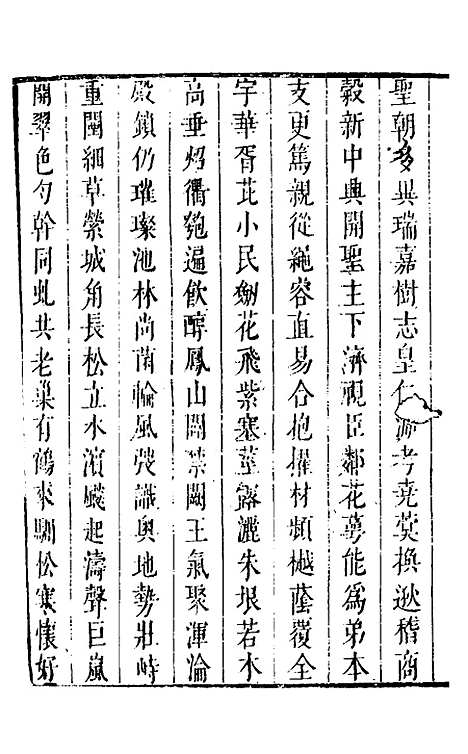 聖朝多異瑞嘉樹志皇仁源考堯蓂換逖稽商
穀新中興開聖主下濟視臣鄰花萼能為弟本
支更篤親從繩容直易合抱擢材頻樾蔭覆全
宇華胥芘小民劒花飛紫塞莖露灑朱垠若木
高垂炤衢匏遍飲醇鳳山開禁闕王氣聚渾淪
殿鎖仍璀璨池林尚菌輪風殘識輿地勢壯峙
重闉細草縈城角長松立水濱颷起濤聲巨嵐
開翠色勻幹同虬共老巢有鶴來馴松寒懷好